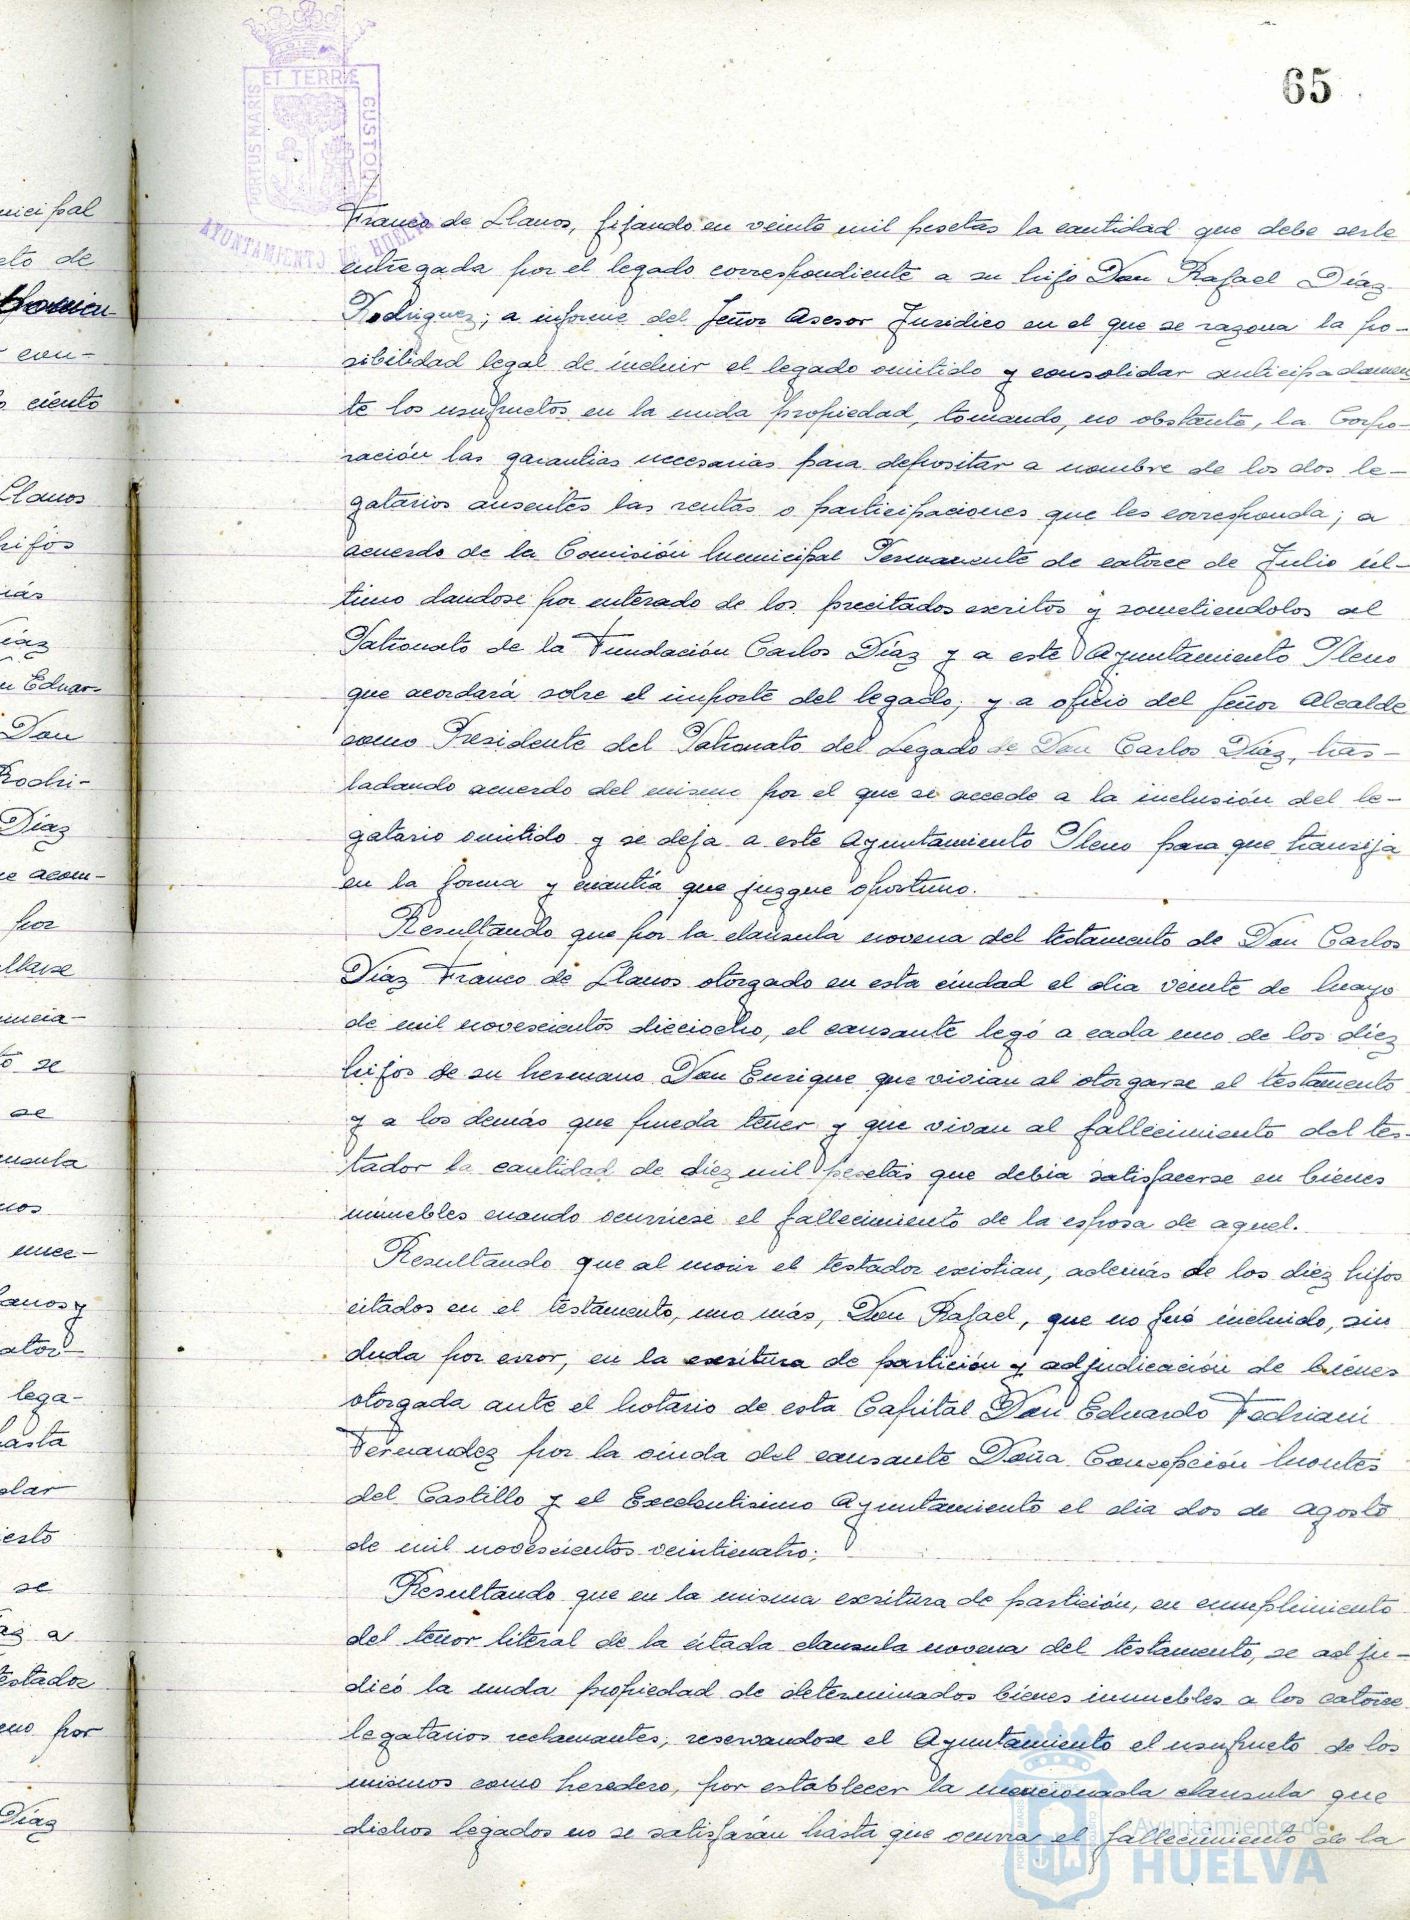 65
PORTUS MARIS ET TERRÆ CUSTODIA
AYUNTAMIENTO DE HUELVA
Franco de Llanos, fijando en veinte mil pesetas la cantidad que debe serle
entregada por el legado correspondiente a su hijo Don Rafael Díaz
Rodriguez; a informe del Señor Asesor Jurídico en el que se razona la po-
sibilidad legal de incluir el legado omitido y consolidar anticipadamen
te los usufructos en la nuda propiedad, tomando, no obstante, la Corpo-
ración las garantias necesarias para depositar a nombre de los dos le-
gatarios ausentes las rentas o participaciones que les corresponda; a
acuerdo de la Comisión Municipal Permanente de catorce de Julio úl-
timo dandose por enterado de los precitados escritos y sometiendolos al
Patronato de la Fundación Carlos Díaz y a este Ayuntamiento Pleno
que acordará sobre el importe del legado; y a oficio del Señor Alcalde
como Presidente del Patronato del Legado de Don Carlos Díaz, tras-
ladando acuerdo del mismo por el que se accede a la inclusión del le-
gatario omitido y se deja a este Ayuntamiento Pleno para que transija
en la forma y cuantía que juzgue oportuno.
Resultando que por la clausula novena del testamento de Don Carlos
Díaz Franco de Llanos otorgado en esta ciudad el dia veinte de Mayo
de mil novescientos dieciocho, el causante legó a cada uno de los diéz
hijos de su hermano Don Enrique que vivian al otorgarse el testamento
y a los demás que pueda tener y que vivan al fallecimiento del tes-
tador la cantidad de diéz mil pesetas que debia satisfacerse en biénes
inmuebles cuando ocurriese el fallecimiento de la esposa de aquel.
Resultando que al morir el testador existian, además de los diéz hijos
citados en el testamento, uno más, Don Rafael, que no fué incluido, sin
duda por error, en la escritura de partición y adjudicación de biénes
otorgada ante el Notario de esta Capital Don Eduardo Fedriani
Fernandez por la viuda del causante Doña Concepción Montes
del Castillo y el Excelentisimo Ayuntamiento el dia dos de Agosto
de mil novescientos veinticuatro;
Resultando que en la misma escritura de partición, en cumplimiento
del tenor literal de la citada clausula novena del testamento, se adju-
dicó la nuda propiedad de determinados biénes inmuebles a los catorce
legatarios reclamantes, reservandose el Ayuntamiento el usufructo de los
mismos como heredero, por establecer la mencionada clausula que
dichos legados no se satisfarán hasta que ocurra el fallecimiento de la
nicipal
eto de
con-
ciento
Llanos
hijos
Díaz
n Eduar-
Don
Rodri-
Díaz
e acom-
por
se
se
lega-
hasta
se
por
Díaz
Ayuntamiento de
HUELVA